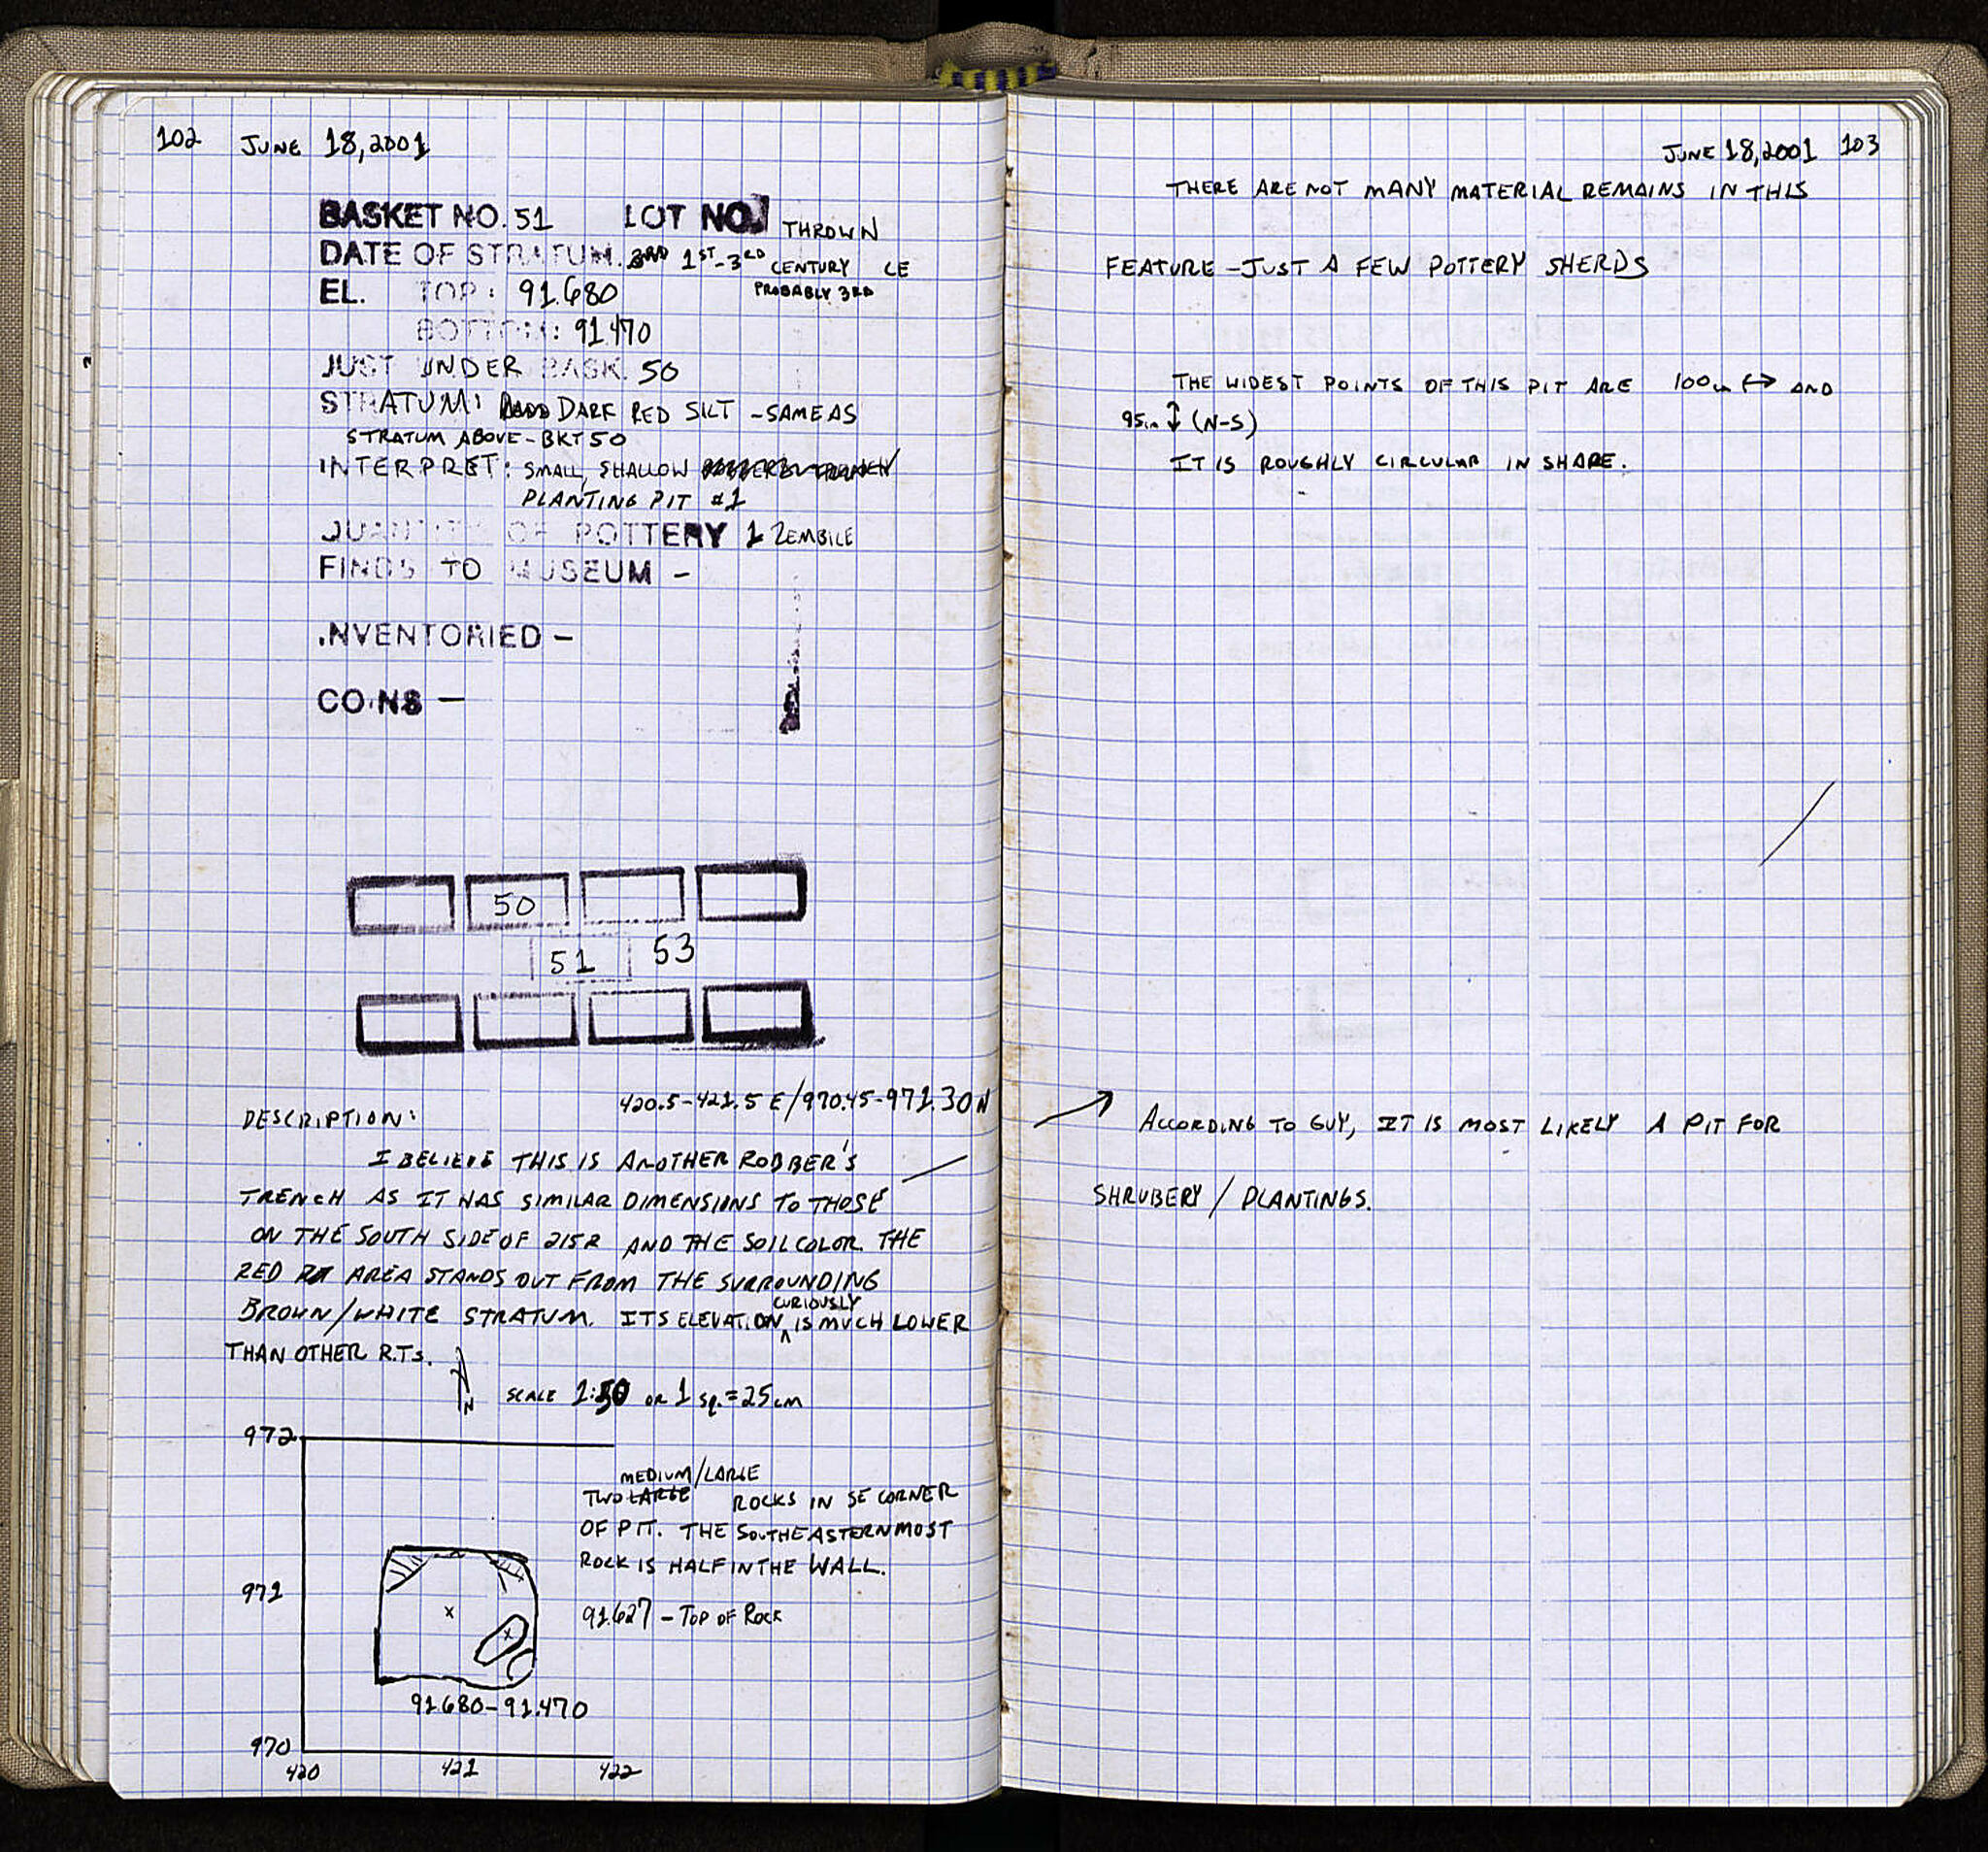 102 JUNE 18,2001
BASKET NO. 51 LOT NO. THROWN
DATE OF STRATUM. 3RD 1ST-3RD CENTURY CE
PROBABLY 3RD
EL. TOP: 91.680
BOTTOM: 91.470
JUST UNDER BASK. 50
STRATUM: DARK RED SILT - SAME AS
STRATUM ABOVE - BKT 50
INTERPRET: SMALL, SHALLOW ROBBER'S TRENCH
PLANTING PIT #1
QUANTITY OF POTTERY 1 ZEMBILE
FINDS TO MUSEUM -
INVENTORIED -
COINS -
50
51 53
420.5-421.5 E/970.45-971.30N
DESCRIPTION:
I BELIEVE THIS IS ANOTHER ROBBER'S
TRENCH AS IT HAS SIMILAR DIMENSIONS TO THOSE
ON THE SOUTH SIDE OF 215R AND THE SOIL COLOR. THE
RED AREA STANDS OUT FROM THE SURROUNDING
CURIOUSLY
BROWN/WHITE STRATUM. ITS ELEVATION ^ IS MUCH LOWER
THAN OTHER R.TS.
N
SCALE 1:50 OR 1 SQ. = 25cm
972
MEDIUM/LARGE
TWO LARGE ROCKS IN SE CORNER
OF PIT. THE SOUTHEASTERNMOST
ROCK IS HALF IN THE WALL.
971
x
x
91.627 - TOP OF ROCK
91.680-91.470
970
420 421 422
JUNE 18,2001 103
THERE ARE NOT MANY MATERIAL REMAINS IN THIS
FEATURE - JUST A FEW POTTERY SHERDS
THE WIDEST POINTS OF THIS PIT ARE 100cm ↔ AND
95cm ↕ (N-S)
IT IS ROUGHLY CIRCULAR IN SHAPE.
→ ACCORDING TO GUY, IT IS MOST LIKELY A PIT FOR
SHRUBERY / PLANTINGS.